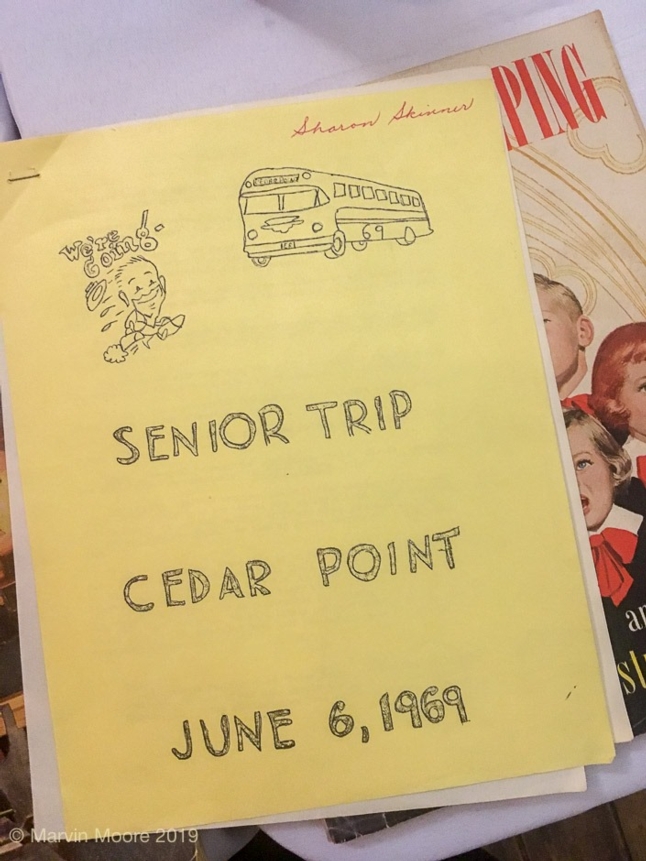 Sharon Skinner
PING
CEDAR POINT
69
We're
Going!
SENIOR TRIP
CEDAR POINT
JUNE 6, 1969
© Marvin Moore 2019